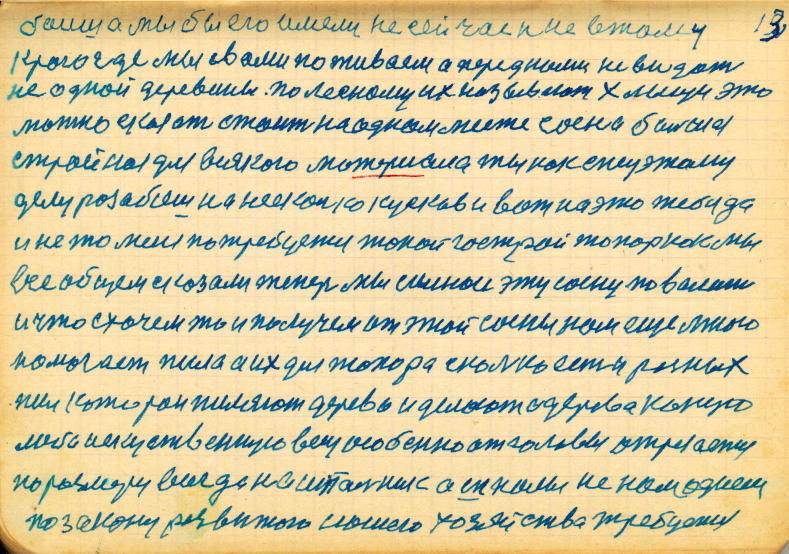 баица мы бы его имели не сейчас и не в тому 13
Крогозде мы свами поживаем а перед нами не видат
не одной деревины. по лесному их называют хмыз это
можно сказат стоит на одном месте сосна балшая
стройная для всякого материала ты как спец этому
делу розабеш на несколко кусков и вот на это тебе да
и не то мен потребуется токой гострой топор как мы
все общем сказали тепер мы силной эту сосну повалили
и что схочем то и получем от этой сосны нам еще много
помогает пила а их для топора сколко есть розных
пил которои пиляют дерево и делают с дерева какую
любо искуственную вещ особенно от головы отрезается
по размеру всегда на
по закону розвитого нашего хозяйства требуется